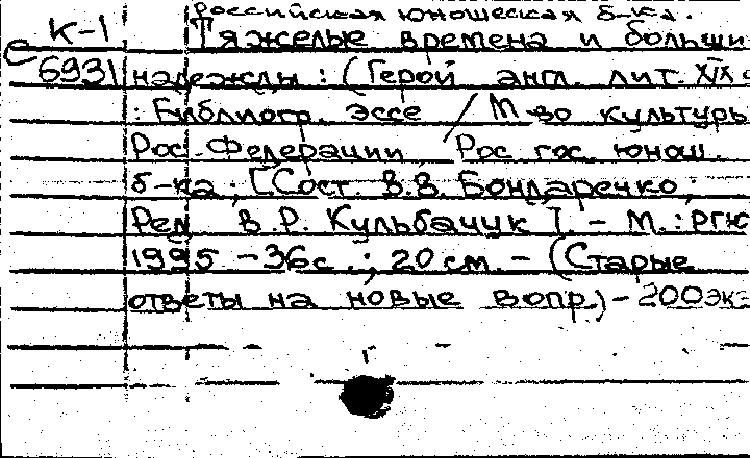 Российская юношеская б-ка.
К-1 Тяжелые времена и больши
с 6931 надежды : (Герой англ. лит. XIX в
: Библиогр. эссе / М-во культуры
Рос. Федерации, Рос. гос. юнош.
б-ка ; [Сост. В.В. Бондаренко ;
Ред. В.Р. Кульбачук]. - М. : РГЮ
1995 - 36с. ; 20 см. - (Старые
ответы на новые вопр.) - 200 экз